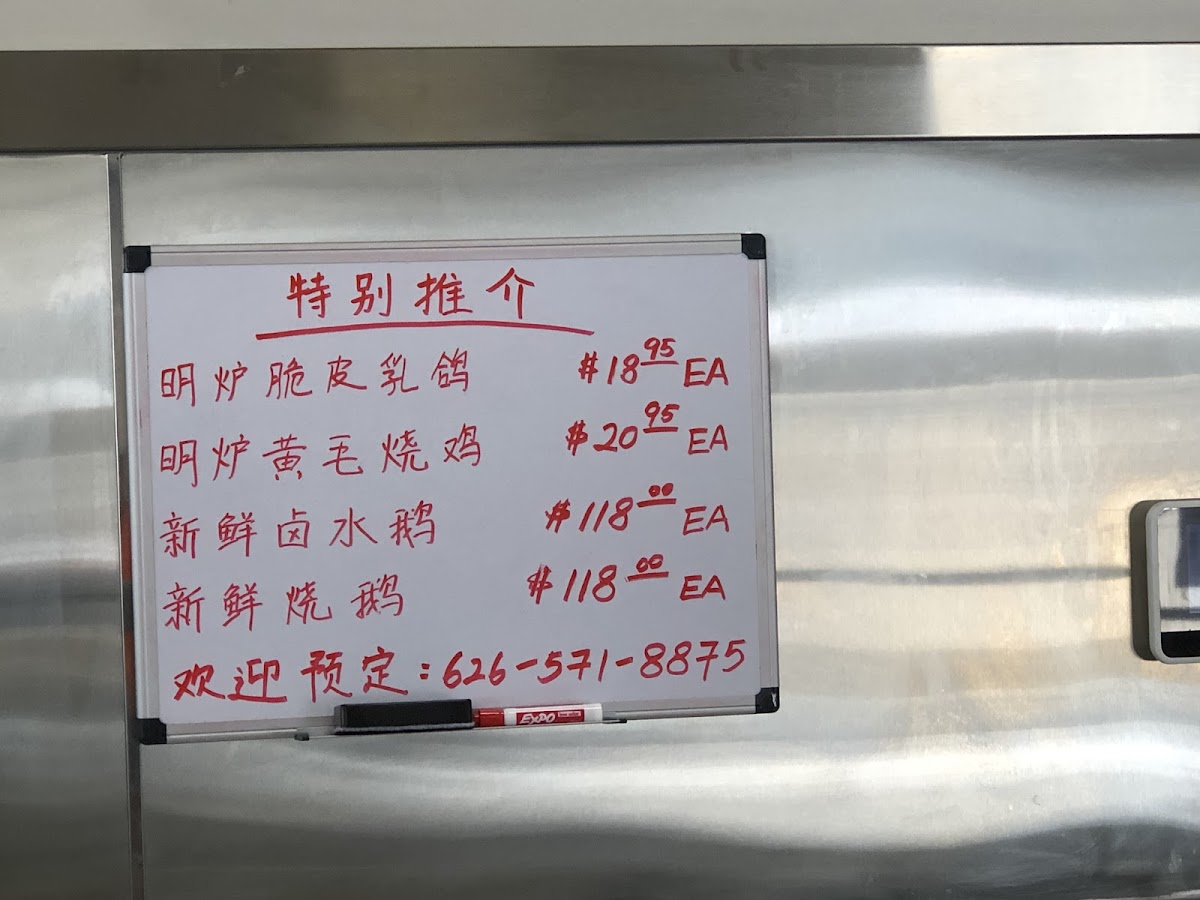 特别推介
明炉脆皮乳鸽 $18.95 EA
明炉黄毛烧鸡 $20.95 EA
新鲜卤水鹅 $118.00 EA
新鲜烧鹅 $118.00 EA
欢迎预定:626-571-8875
EXPO